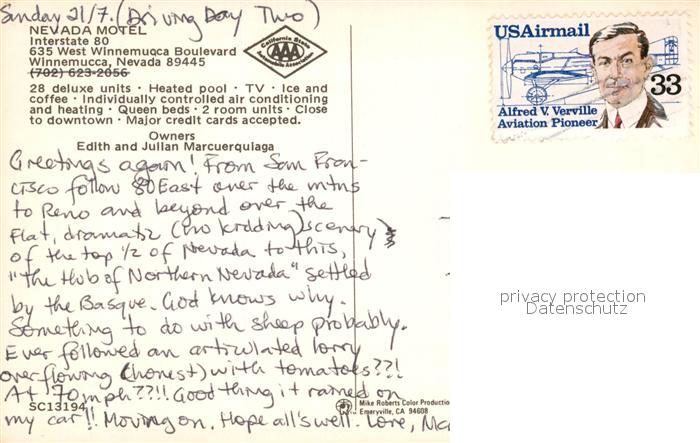 Sunday 21/7. (Driving Day Two)
NEVADA MOTEL
Interstate 80
635 West Winnemucca Boulevard
Winnemucca, Nevada 89445
(702) 623-2056
28 deluxe units · Heated pool · TV · Ice and
coffee · Individually controlled air conditioning
and heating · Queen beds · 2 room units · Close
to downtown · Major credit cards accepted.
Owners
Edith and Julian Marcuerquiaga
California State
AAA
Automobile Association
USAirmail
33
Alfred V. Verville
Aviation Pioneer
Greetings again! From San Fran-
cisco follow 80 East over the mtns
to Reno and beyond over the
flat, dramatic (no kidding) scenery
of the top 1/2 of Nevada to this,
"the Hub of Northern Nevada" settled
by the Basque. God knows why.
Something to do with sheep probably.
Ever followed an articulated lorry
overflowing (honest) with tomatoes??!
At 70 mph??!! Good thing it rained on
my car!! Moving on. Hope all's well. Love,
SC13194
Mike Roberts Color Productio
Emeryville, CA 94608
privacy protection
Datenschutz